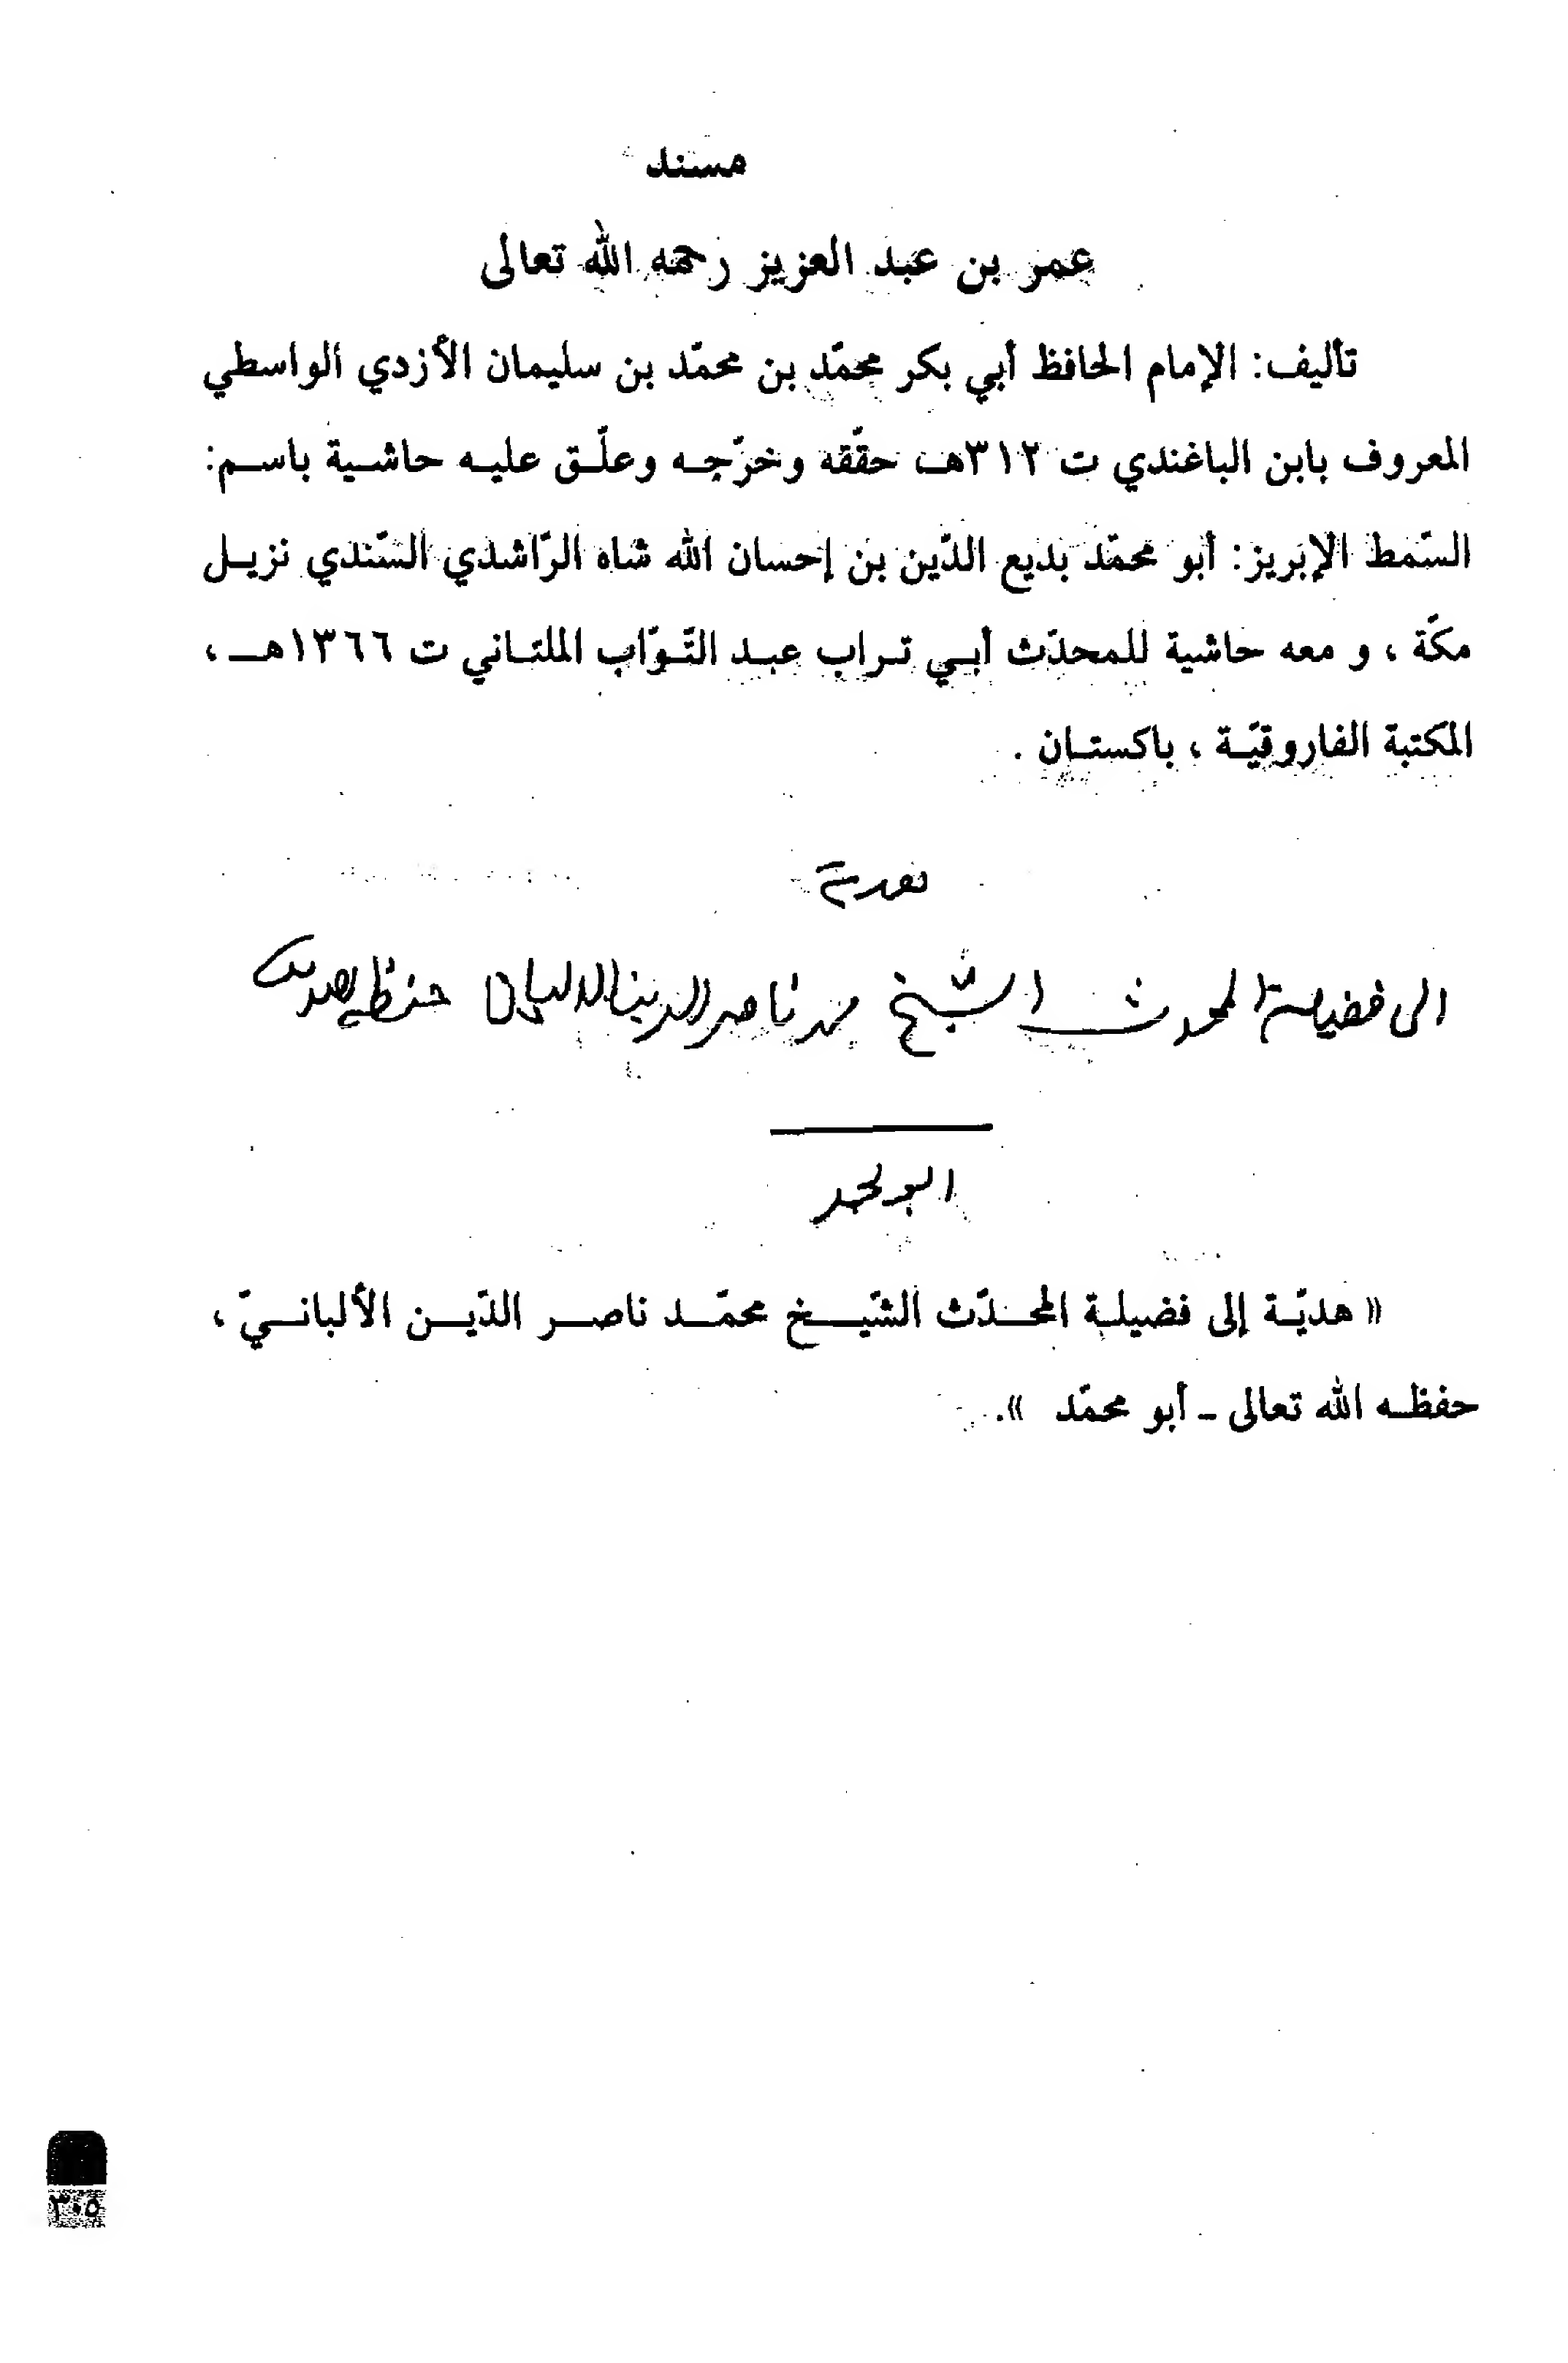 مسند
عمر بن عبد العزيز رحمه الله تعالى
تأليف: الإمام الحافظ أبي بكر محمّد بن محمّد بن سليمان الأزدي الواسطي
المعروف بابن الباغندي ت ٣١٢هـ حقّقه وخرّجه وعلّق عليه حاشية باسم:
السّمط الإبريز: أبو محمّد بديع الدّين بن إحسان الله شاه الرّاشدي السّندي نزيل
مكّة ، و معه حاشية للمحدّث أبي تراب عبد التّوّاب الملتاني ت ١٣٦٦هـ ،
المكتبة الفاروقيّة ، باكستان .
الى فضيلة المحدث الشيخ محمد ناصر الدين الالباني حفظه
ابو محمد
« هديّة إلى فضيلة المحدّث الشّيخ محمّد ناصر الدّين الألبانيّ ،
حفظه الله تعالى - أبو محمّد ».
٣٠٥